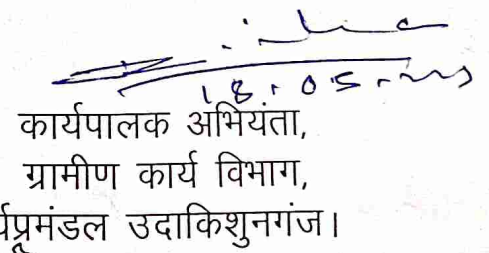 18.05.
कार्यपालक अभियंता,
ग्रामीण कार्य विभाग,
र्यप्रमंडल उदाकिशुनगंज।